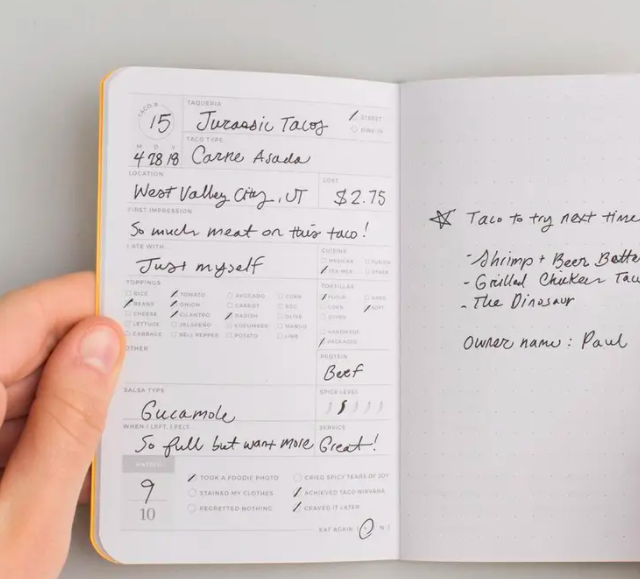 TACO #
15
TAQUERIA
Jurassic Tacos
STREET
DINE IN
M D Y
4 28 18
TACO TYPE
Carne Asada
LOCATION
West Valley City, UT
COST
$2.75
FIRST IMPRESSION
So much meat on this taco!
I ATE WITH
Just myself
CUISINE
MEXICAN FUSION
TEX-MEX OTHER
TOPPINGS
RICE TOMATO AVOCADO CORN
BEANS ONION CARROT EGG
CHEESE CILANTRO RADISH OLIVE
LETTUCE JALAPENO CUCUMBER MANGO
CABBAGE BELL PEPPER POTATO LIME
TORTILLAS
FLOUR HARD
CORN SOFT
HANDMADE
PACKAGED
OTHER
PROTEIN
Beef
SALSA TYPE
Gucamole
SPICE LEVEL
WHEN I LEFT, I FELT
So full but want more
SERVICE
Great!
9
10
TOOK A FOODIE PHOTO
CRIED SPICY TEARS OF JOY
STAINED MY CLOTHES
ACHIEVED TACO NIRVANA
REGRETTED NOTHING
CRAVED IT LATER
EAT AGAIN
Taco to try next time
-Shrimp + Beer Batte
- Grilled Chicken Tac
- The Dinosaur
Owner name: Paul